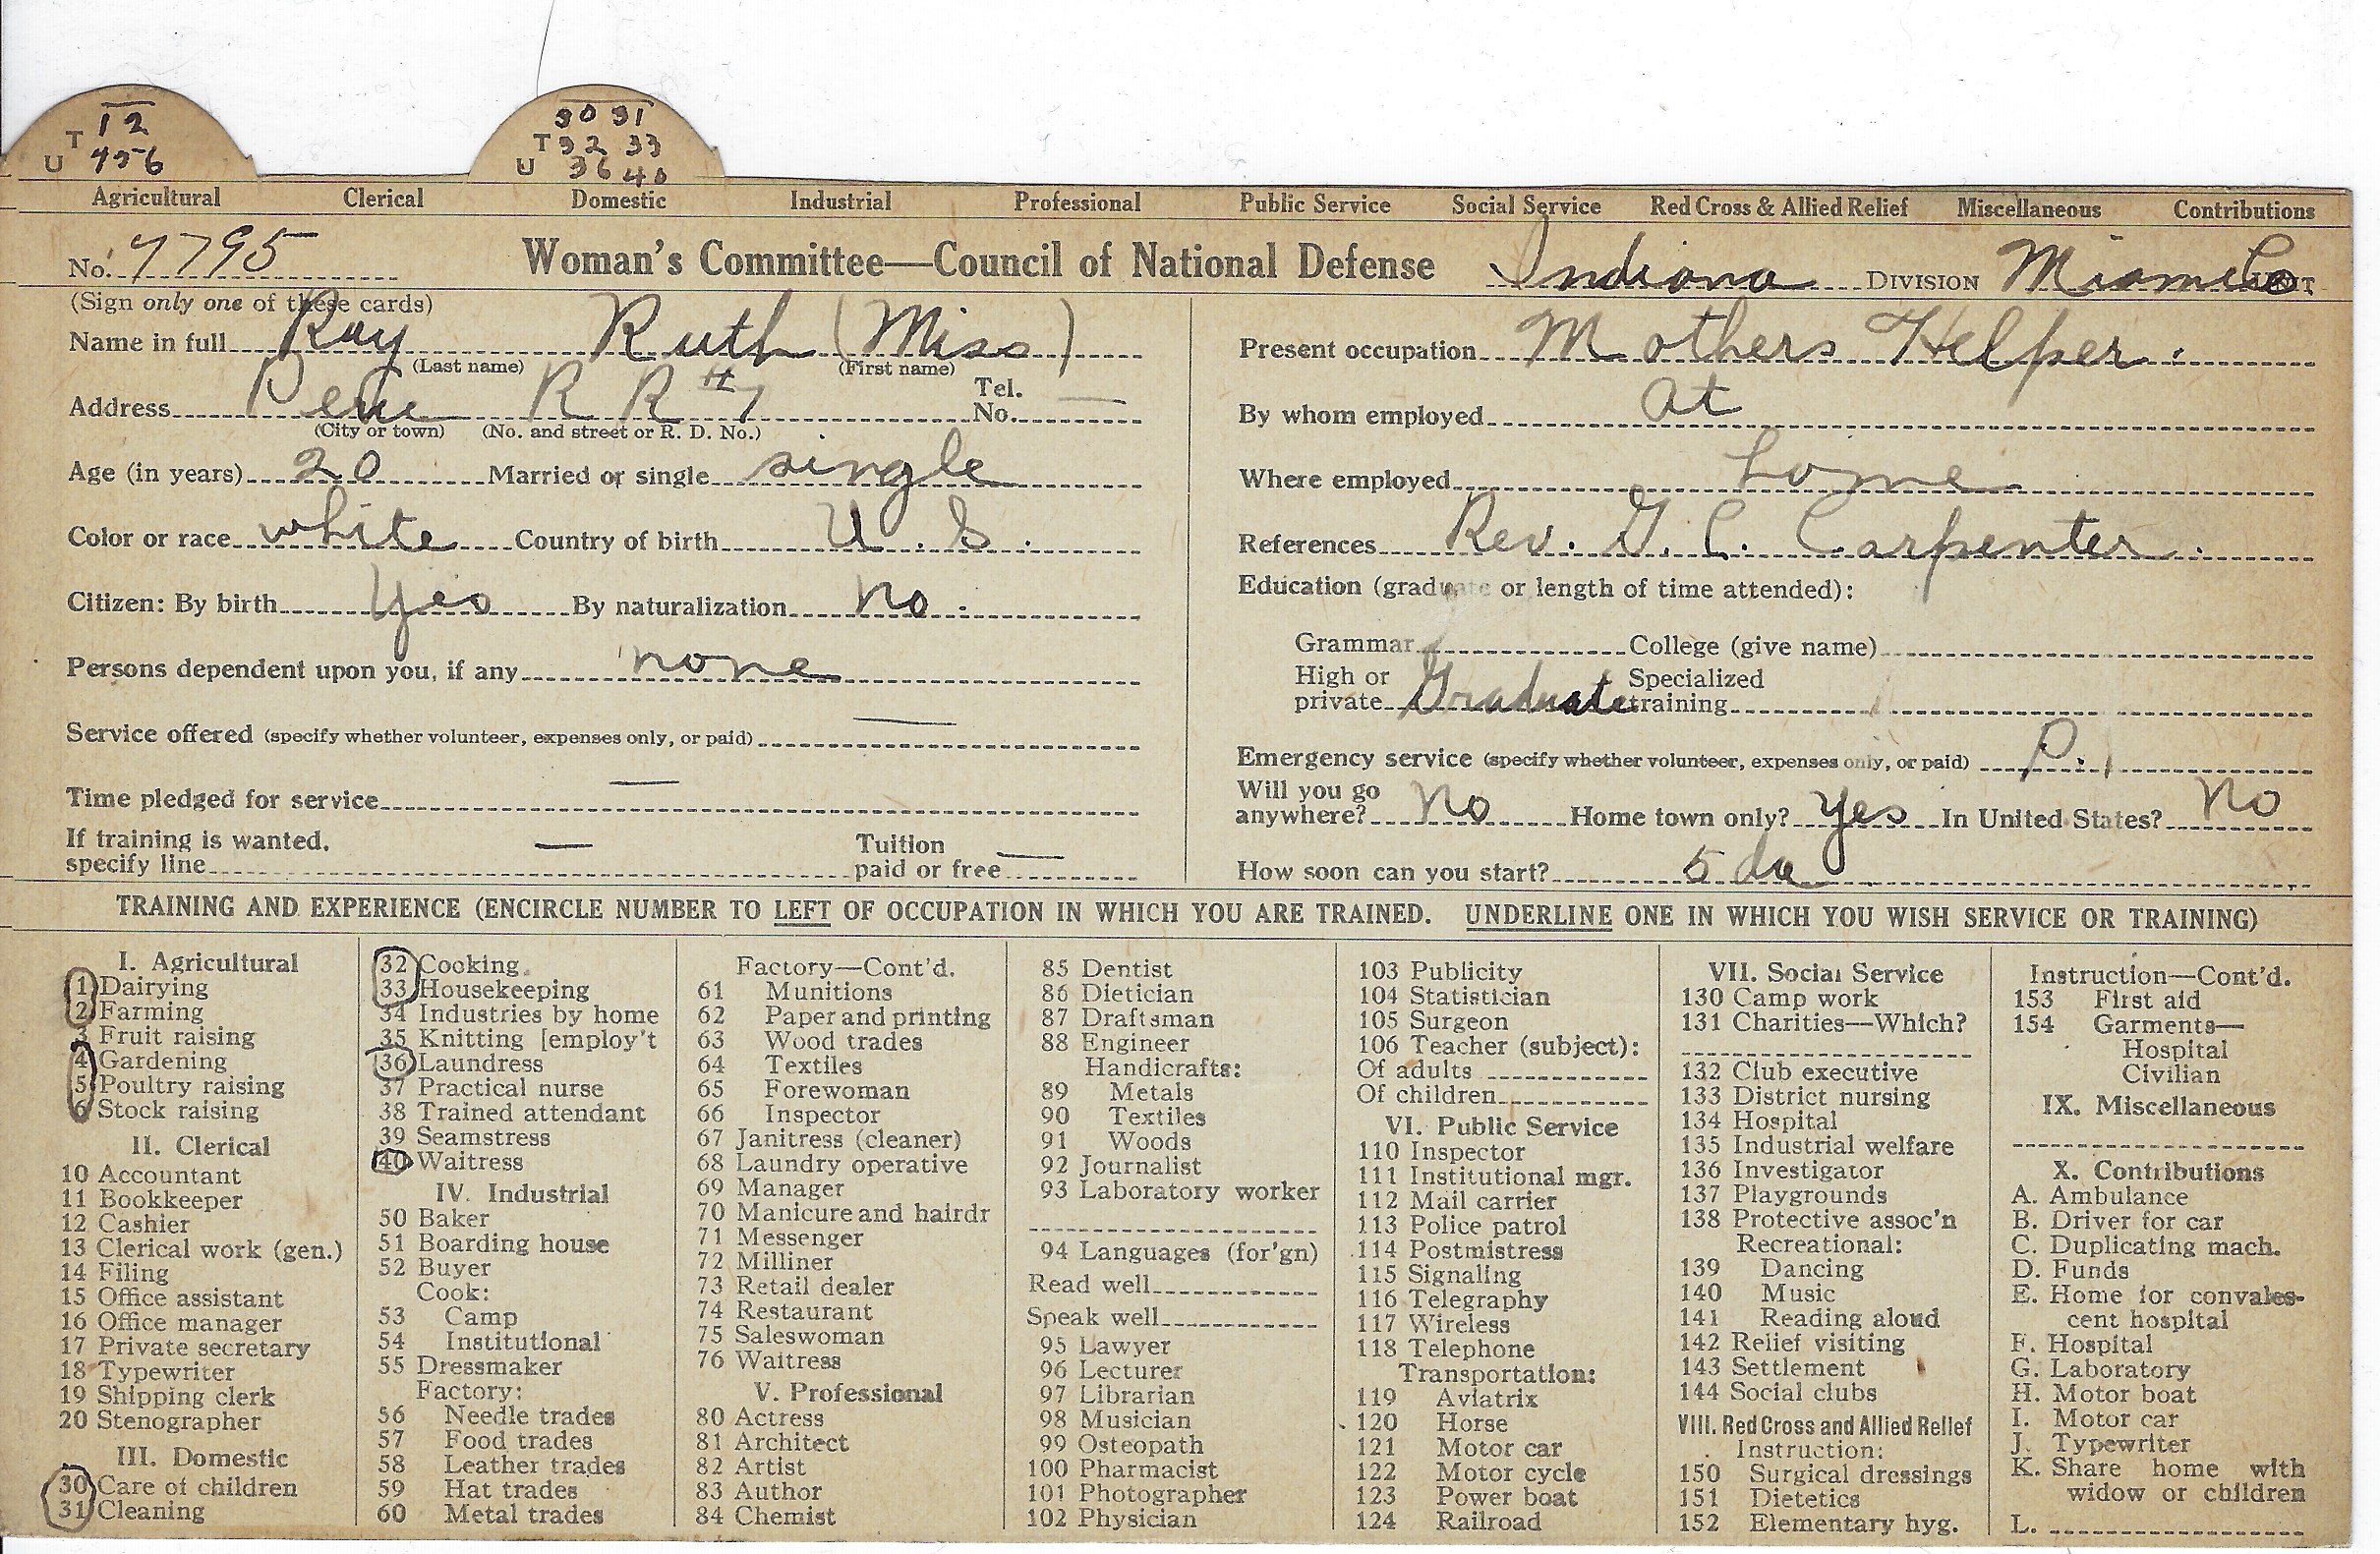 12
T
U 456
30 31
T 32 33
U 36 40
Agricultural Clerical Domestic Industrial Professional Public Service Social Service Red Cross & Allied Relief Miscellaneous Contributions
No. 7795 Woman's Committee—Council of National Defense Indiana DIVISION Miami Co. UNIT
(Sign only one of these cards)
Name in full Ray Ruth (Miss)
(Last name) (First name)
Address Peru R R #7 Tel. No. —
(City or town) (No. and street or R. D. No.)
Age (in years) 20 Married or single single
Color or race white Country of birth U. S.
Citizen: By birth yes By naturalization no.
Persons dependent upon you, if any none
Service offered (specify whether volunteer, expenses only, or paid) —
Time pledged for service —
If training is wanted, specify line — Tuition paid or free —
Present occupation Mothers Helper.
By whom employed at
Where employed home
References Rev. G. C. Carpenter.
Education (graduate or length of time attended):
Grammar College (give name)
High or private Graduate Specialized training
Emergency service (specify whether volunteer, expenses only, or paid) P.
Will you go anywhere? No Home town only? yes In United States? No
How soon can you start? 5 da
TRAINING AND EXPERIENCE (ENCIRCLE NUMBER TO LEFT OF OCCUPATION IN WHICH YOU ARE TRAINED. UNDERLINE ONE IN WHICH YOU WISH SERVICE OR TRAINING)
I. Agricultural
1 Dairying
2 Farming
3 Fruit raising
4 Gardening
5 Poultry raising
6 Stock raising
II. Clerical
10 Accountant
11 Bookkeeper
12 Cashier
13 Clerical work (gen.)
14 Filing
15 Office assistant
16 Office manager
17 Private secretary
18 Typewriter
19 Shipping clerk
20 Stenographer
III. Domestic
30 Care of children
31 Cleaning
32 Cooking
33 Housekeeping
34 Industries by home
35 Knitting [employ't
36 Laundress
37 Practical nurse
38 Trained attendant
39 Seamstress
40 Waitress
IV. Industrial
50 Baker
51 Boarding house
52 Buyer
Cook:
53 Camp
54 Institutional
55 Dressmaker
Factory:
56 Needle trades
57 Food trades
58 Leather trades
59 Hat trades
60 Metal trades
Factory—Cont'd.
61 Munitions
62 Paper and printing
63 Wood trades
64 Textiles
65 Forewoman
66 Inspector
67 Janitress (cleaner)
68 Laundry operative
69 Manager
70 Manicure and hairdr
71 Messenger
72 Milliner
73 Retail dealer
74 Restaurant
75 Saleswoman
76 Waitress
V. Professional
80 Actress
81 Architect
82 Artist
83 Author
84 Chemist
85 Dentist
86 Dietician
87 Draftsman
88 Engineer
Handicrafts:
89 Metals
90 Textiles
91 Woods
92 Journalist
93 Laboratory worker
94 Languages (for'gn)
Read well
Speak well
95 Lawyer
96 Lecturer
97 Librarian
98 Musician
99 Osteopath
100 Pharmacist
101 Photographer
102 Physician
103 Publicity
104 Statistician
105 Surgeon
106 Teacher (subject):
Of adults
Of children
VI. Public Service
110 Inspector
111 Institutional mgr.
112 Mail carrier
113 Police patrol
114 Postmistress
115 Signaling
116 Telegraphy
117 Wireless
118 Telephone
Transportation:
119 Aviatrix
120 Horse
121 Motor car
122 Motor cycle
123 Power boat
124 Railroad
VII. Social Service
130 Camp work
131 Charities—Which?
132 Club executive
133 District nursing
134 Hospital
135 Industrial welfare
136 Investigator
137 Playgrounds
138 Protective assoc'n
Recreational:
139 Dancing
140 Music
141 Reading aloud
142 Relief visiting
143 Settlement
144 Social clubs
VIII. Red Cross and Allied Relief
Instruction:
150 Surgical dressings
151 Dietetics
152 Elementary hyg.
Instruction—Cont'd.
153 First aid
154 Garments—
Hospital
Civilian
IX. Miscellaneous
X. Contributions
A. Ambulance
B. Driver for car
C. Duplicating mach.
D. Funds
E. Home for convales-
cent hospital
F. Hospital
G. Laboratory
H. Motor boat
I. Motor car
J. Typewriter
K. Share home with
widow or children
L.